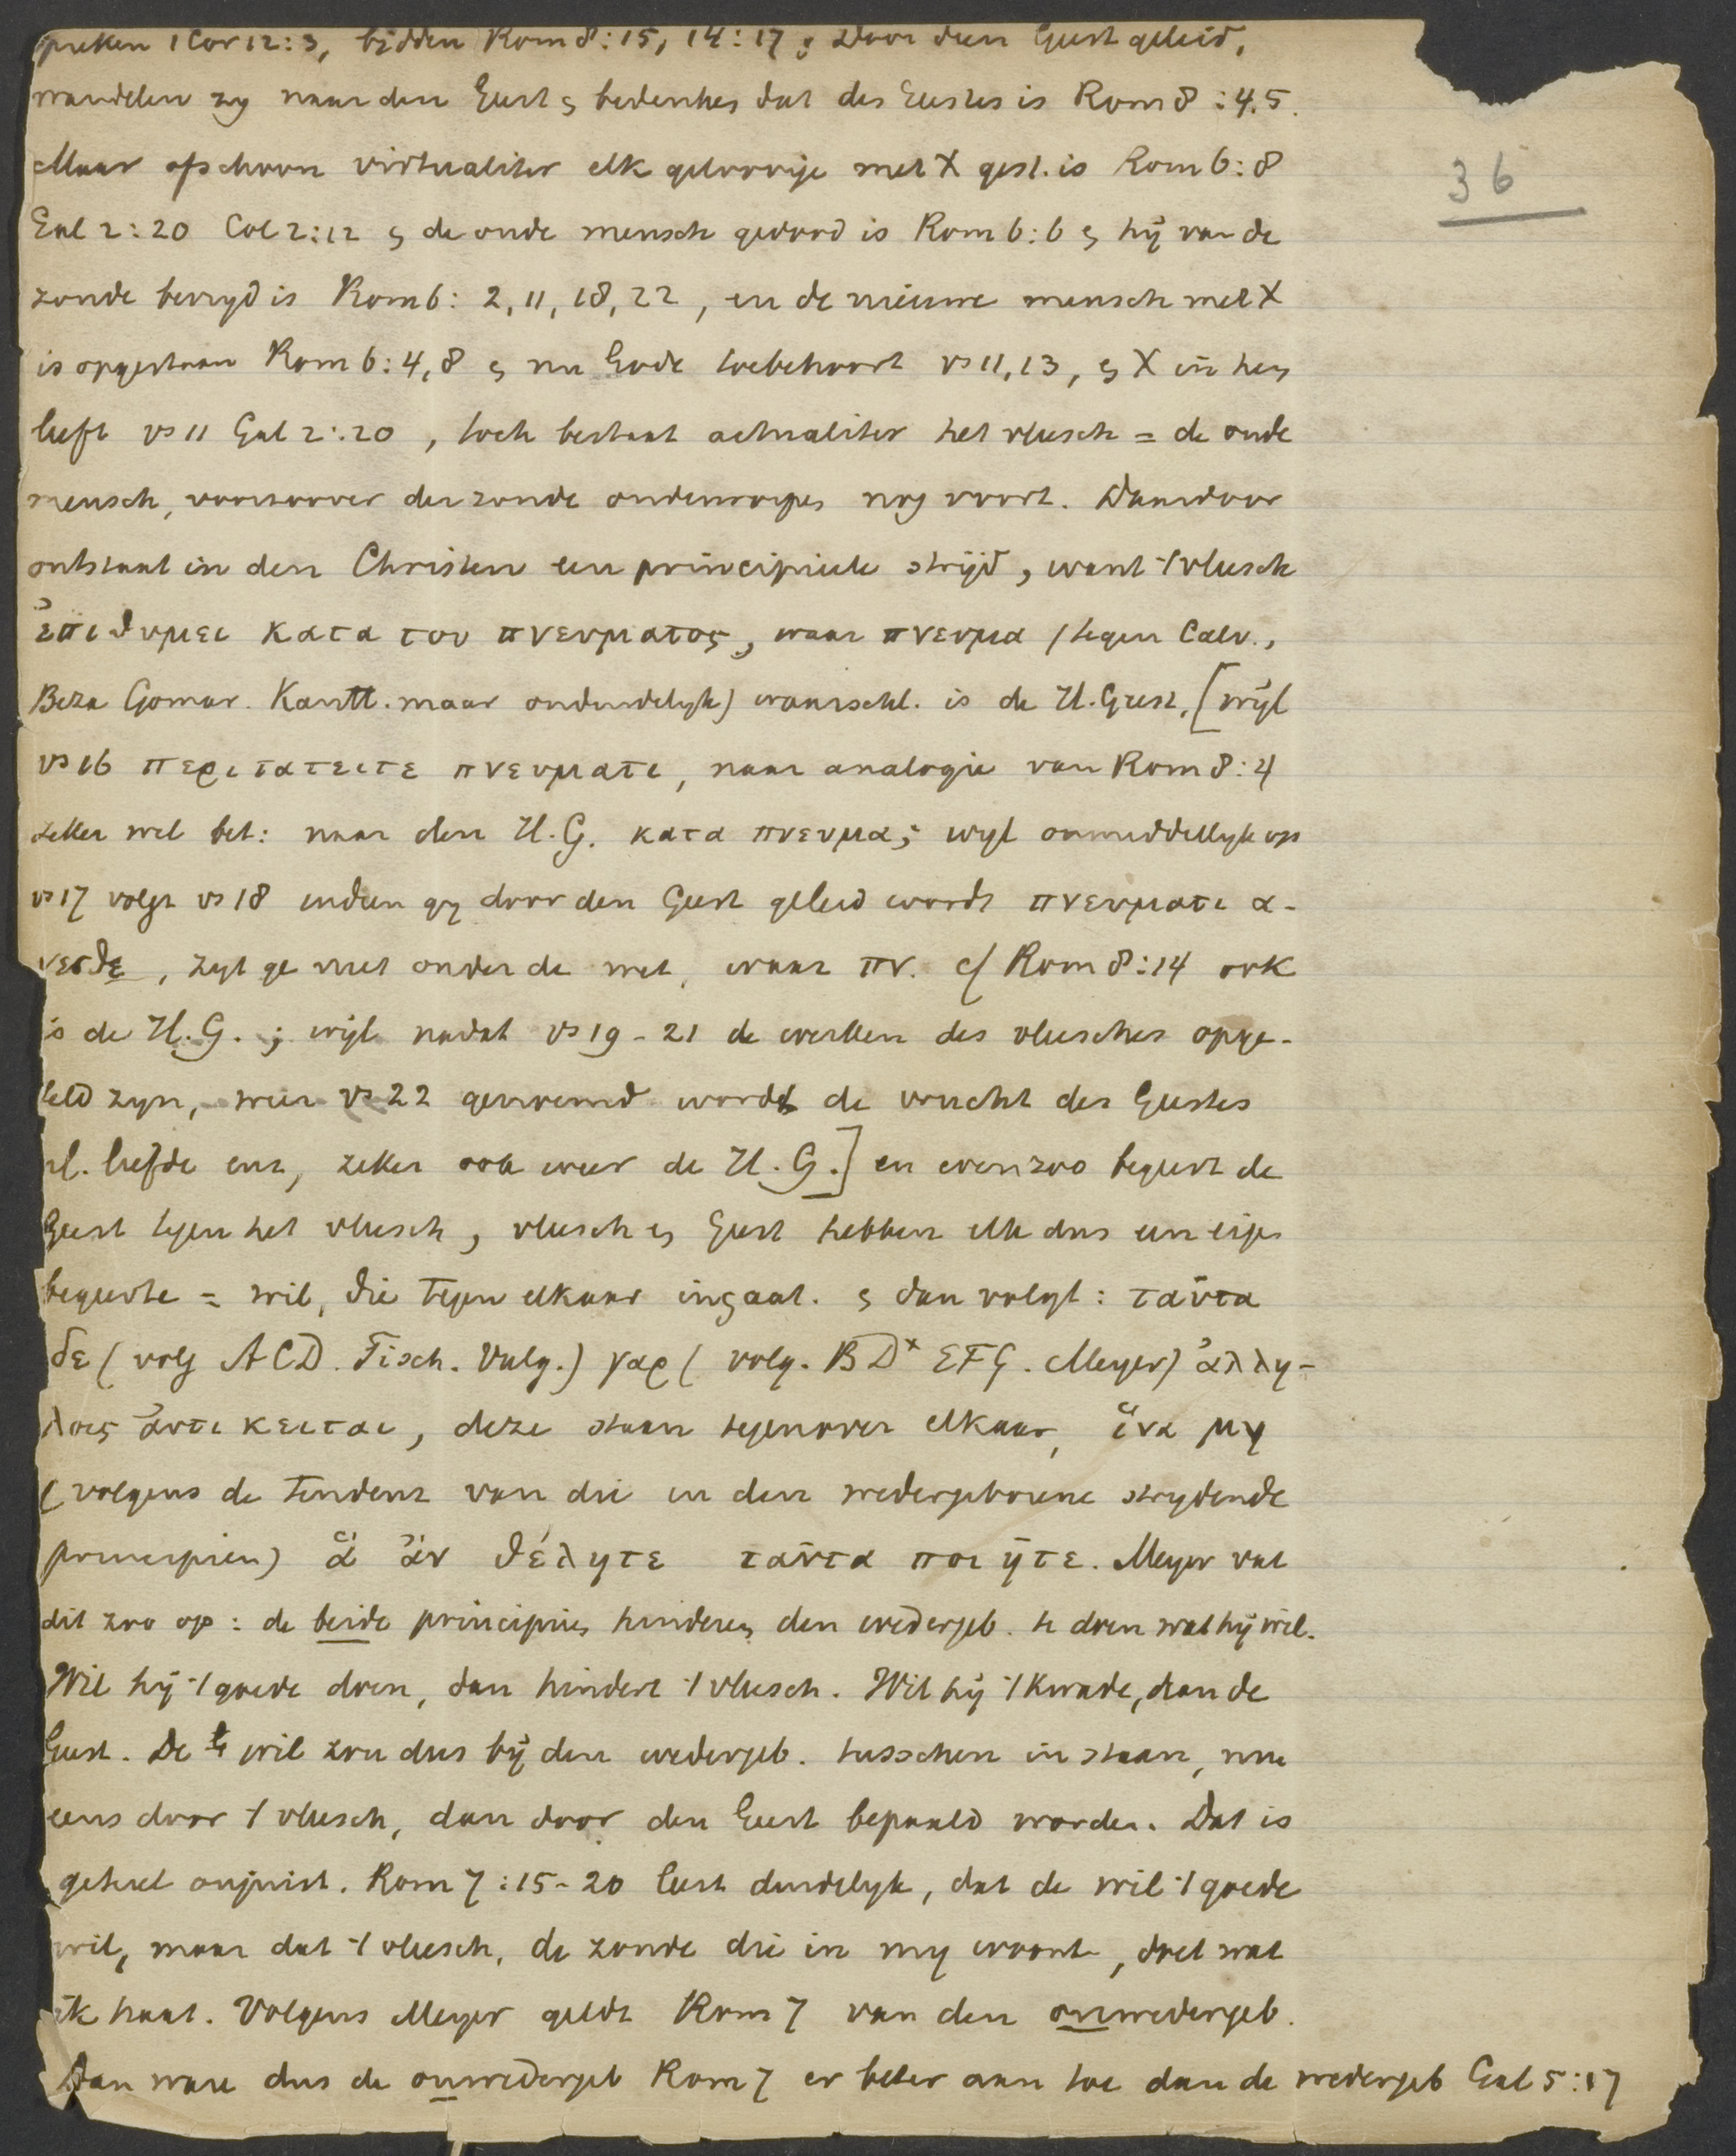 spreken 1 Cor 12:3, bidden Rom 8:15, 14:17 ; Door dien Geest geleid,
wandelen zy naar den Geest & bedenken dat des Geestes is Rom 8:4.5.
36
Maar ofschoon virtualiter elk geloovige met X gest. is Rom 6:8
Gal 2:20 Col 2:12 & de oude mensch gedood is Rom 6:6 & hij van de
zonde bevryd is Rom 6: 2, 11, 18, 22, en de nieuwe mensch met X
is opgestaan Rom 6:4, 8 & nu Gode toebehoort vs 11, 13, & X in hem
leeft vs 11 Gal 2:20, toch bestaat actualiter het vleesch = de oude
mensch, voorzoover der zonde onderworpen nog voort. Daardoor
ontstaat in den Christen een principieele strijd, want 't vleesch
ἐπιθυμει κατα του πνευματος, waar πνευμα (tegen Calv.,
Beza Gomar. Kantt. maar onduidelyk) waarschl. is de H. Geest, [wijl
vs 16 περιπατειτε πνευματι, naar analogie van Rom 8:4
zeker wel bet: naar den H. G. κατα πνευμα; wyl onmiddellyk op
vs 17 volgt vs 18 indien gy door den Geest geleid wordt πνευματι α-
γεσθε, zyt ge niet onder de wet, waar πν. cf Rom 8:14 ook
is de H. G. ; wijl nadat vs 19-21 de werken des vleesches opge-
teld zyn, weer vs 22 genoemd wordt de vrucht des Geestes
nl. liefde enz, zeker ook weer de H. G.] en evenzoo begeert de
Geest tegen het vleesch, vleesch & Geest hebben elk dus een eigen
begeerte = wil, die tegen elkaar ingaat. & dan volgt: ταῦτα
δε (volg ACD. Tisch. Vulg.) γαρ (volg. BD* EFG. Meyer) ἀλλη-
λοις ἀντικειται, deze staan tegenover elkaar, ἵνα μη
(volgens de tendenz van die in den wedergeborene strydende
principien) ἃ ἂν θέλητε ταῦτα ποιῆτε. Meyer vat
dit zoo op: de beide principien hinderen den wedergeb. te doen wat hij wil.
Wil hij 't goede doen, dan hindert 't vleesch. Wil hij 't kwade, dan de
Geest. De wil zou dus bij den wedergeb. tusschen in staan, nu
eens door 't vleesch, dan door den Geest bepaald worden. Dat is
geheel onjuist. Rom 7:15-20 leert duidelyk, dat de wil 't goede
wil, maar dat 't vleesch, de zonde die in my woont, doet wat
ik haat. Volgens Meyer geldt Rom 7 van den onwedergeb.
Dan ware dus de onwedergeb Rom 7 er beter aan toe dan de wedergeb Gal 5:17